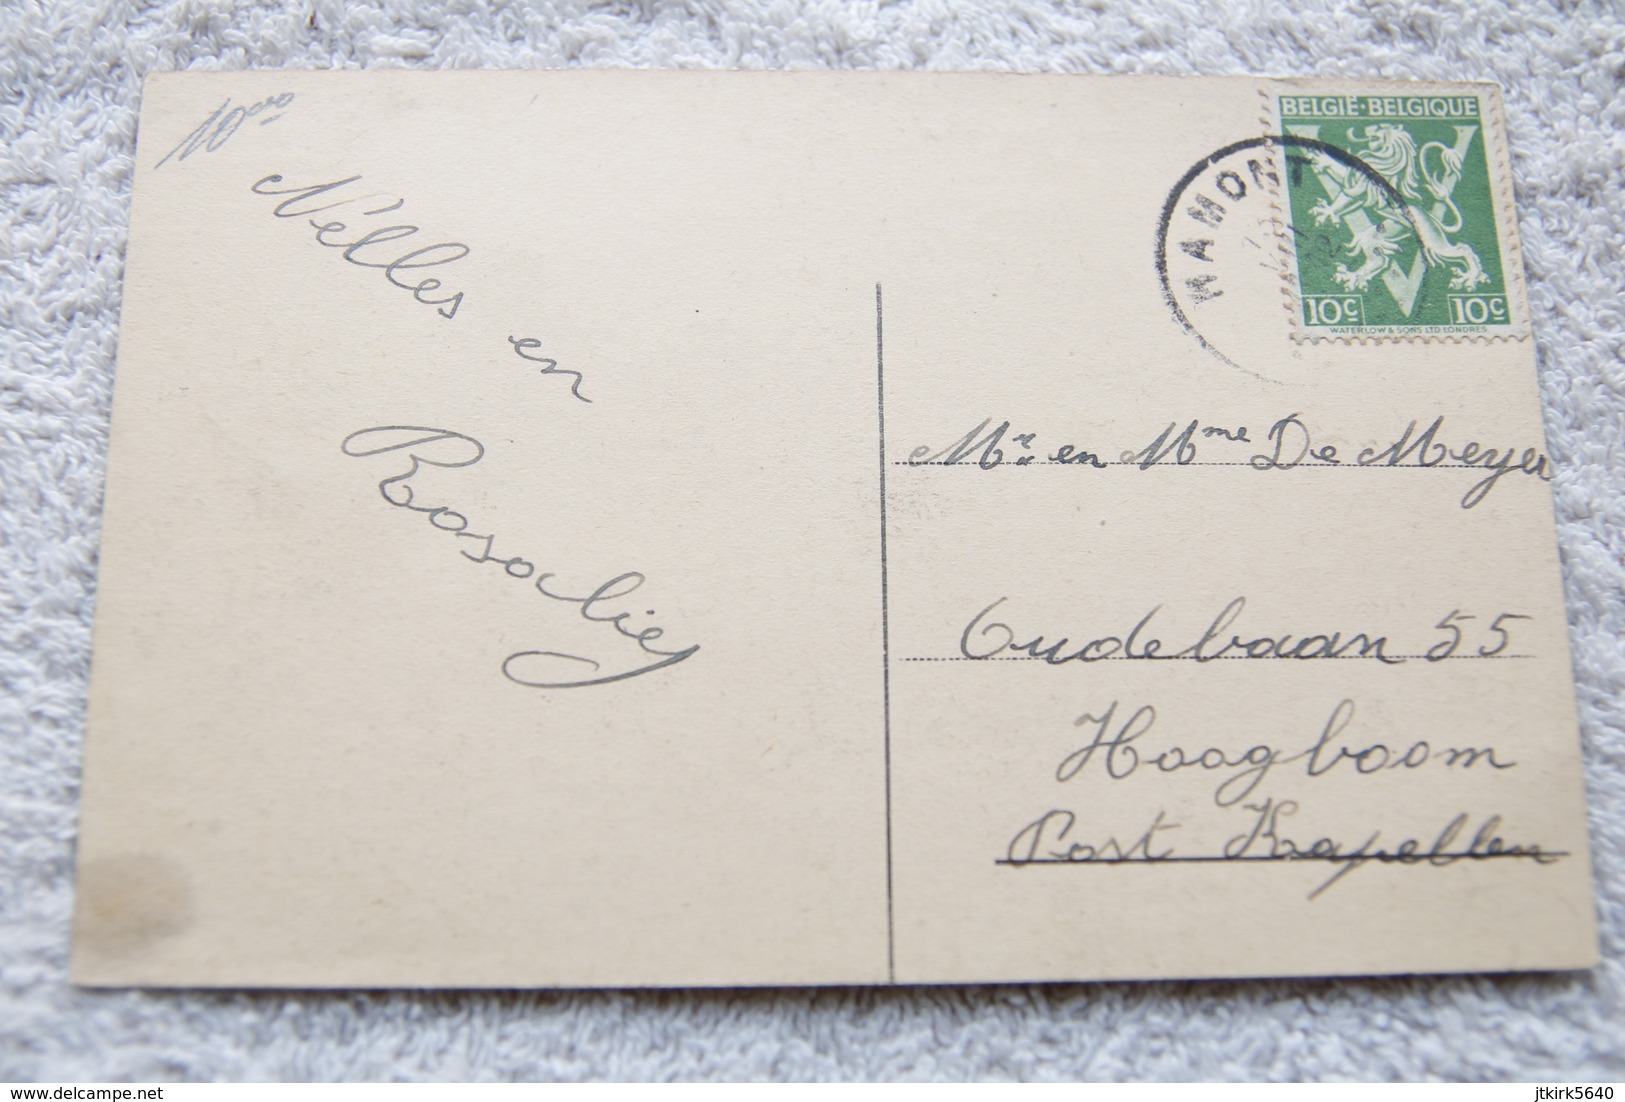 Nelles en
Rosalie
BELGIË·BELGIQUE
HAMONT
10c 10c
WATERLOW & SONS LTD LONDRES
Mr. en Mme De Meyer
Oudebaan 55
Hoogboom
Post Kapellen
delcampe.net
jtkirk5640